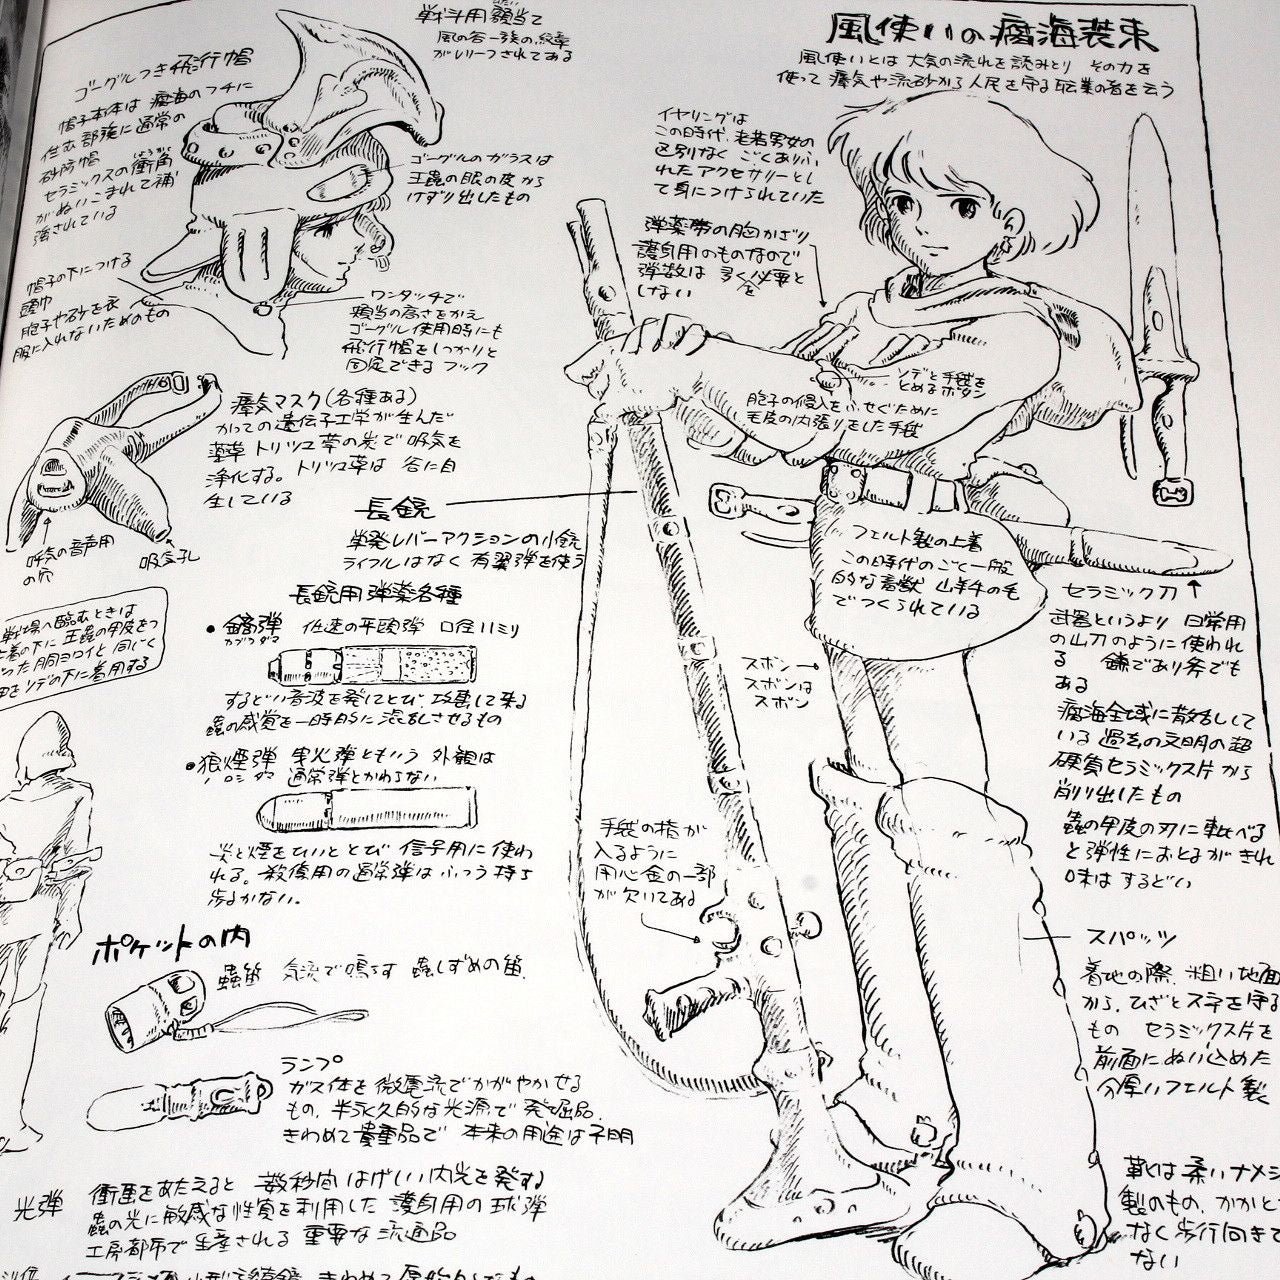 風使いの腐海装束
風使いとは 大気の流れを読みとり その力を
使って 瘴気や流砂から人民を守る職業の者を云う
戦斗用額当て
風の谷一族の紋章
がレリーフされてある
ゴーグルつき飛行帽
帽子本体は 腐海のフチに
住む部落に通常の
砂防帽
セラミックスの衝角
がぬいこまれて補
強されている
ゴーグルのガラスは
王蟲の眼の皮から
けずり出したもの
帽子の下につける
頭巾
胞子や砂を衣
服に入れないためのもの
ワンタッチで
頬当の高さをかえ
ゴーグル使用時にも
飛行帽をしっかりと
固定できるフック
イヤリングは
この時代、老若男女の
区別なく ごくありふ
れたアクセサリーとし
て身につけられていた
弾薬帯の胸かざり
護身用のものなので
弾数は 多くを必要と
しない
ソデと手袋を
とめるボタン
胞子の侵入をふせぐために
毛皮の内張りをした手袋
瘴気マスク(各種ある)
かつての遺伝子工学が生んだ
薬草 トリツコ草の炭で吸気を
浄化する。 トリツコ草は 谷に自
生している
呼気の音声用
の穴
吸気孔
長銃
単発レバーアクションの小銃
ライフルはなく 有翼弾を使う
長銃用弾薬各種
●鏑弾 低速の平頭弾 口径11ミリ
カブラダマ
するどい音波を発してとび、攻撃して来る
蟲の感覚を一時的に混乱させるもの
●狼煙弾 曳火弾ともいう 外観は
ロシダマ 通常弾とかわらない
炎と煙をひいてとび 信号用に使わ
れる。殺傷用の通常弾はふつう持ち
歩かない。
フェルト製の上着
この時代のごく一般
的な着獣 山羊牛の毛
でつくられている
セラミック刀
武器というより 日常用
の山刀のように使われ
る 鎌であり斧でも
ある
腐海全域に散乱して
いる過去の文明の超
硬質セラミックス片から
削り出したもの
蟲の甲皮の刃に較べる
と弾性におとるがきれ
味はするどい
ズボン
ズボンは
ズボン
戦場へ臨むときは
上着の下に王蟲の甲皮をつ
った胴ヨロイと同じく
甲をソデの下に着用する
手袋の指が
入るように
用心金の一部
が欠いてある
ポケットの内
蟲笛 気流で鳴らす 蟲しずめの笛
ランプ
ガス体を微電流でかがやかせる
もの、半永久的な光源で 発掘品、
きわめて貴重品で 本来の用途は不明
光弾 衝撃をあたえると 数秒間 はげしい閃光を発する
蟲の光に敏感な性質を利用した 護身用の球弾
工房都市で生産される 重要な流通品
スパッツ
着地の際、粗い地面
から、ひざとスネを守る
もの セラミックス片を
前面にぬい込めた
分厚いフェルト製
靴は柔いナメシ
製のもの、かかと
なく歩行向きで
ない